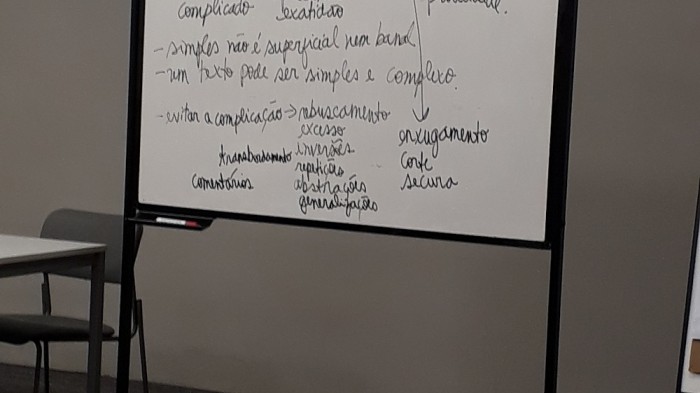 complicado exatidão
- simples não é superficial nem banal
- um texto pode ser simples e complexo.
- evitar a complicação → rebuscamento
excesso
enxugamento
inversões
transbordamento
corte
repetições
comentários
abstrações
secura
generalizações